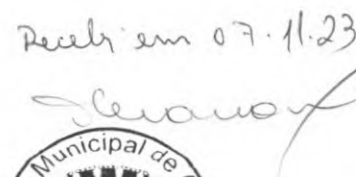 Recebi em 07.11.23
Municipal de